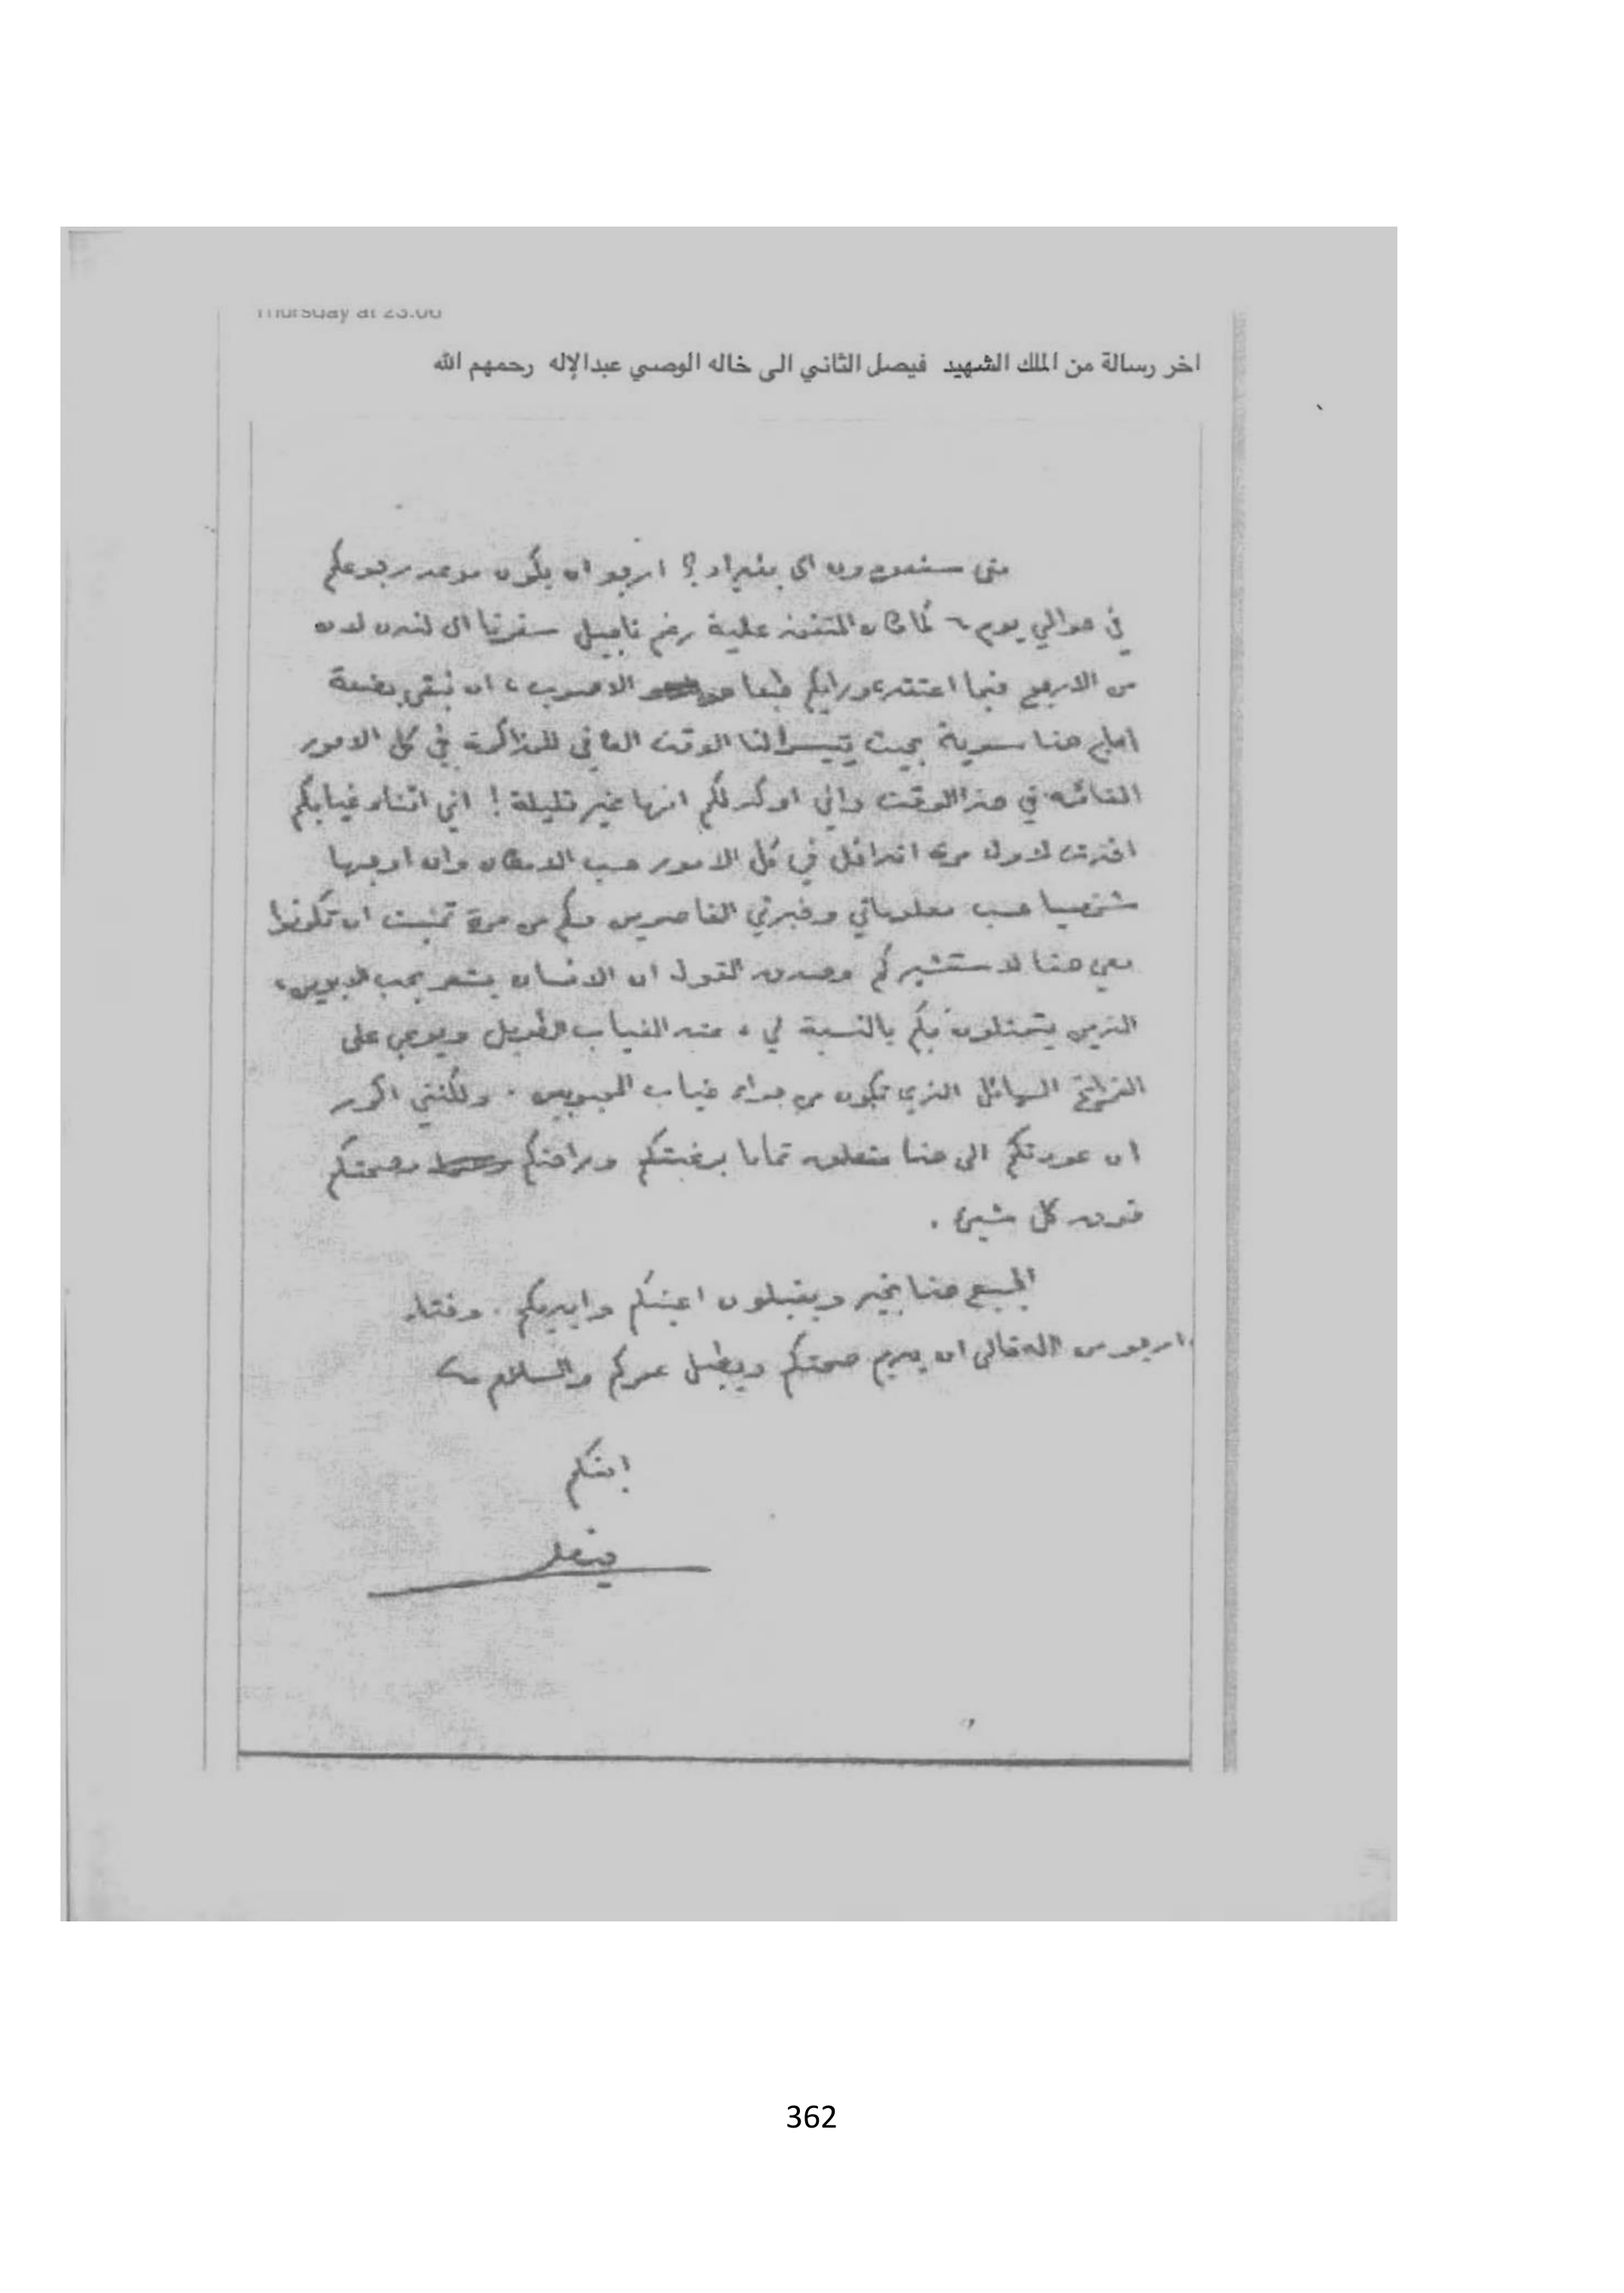 Thursday at 23:06
اخر رسالة من الملك الشهيد فيصل الثاني الى خاله الوصي عبدالإله رحمهم الله
متى ستعودون الى بغداد؟ ارجو ان يكون موعد رجوعكم
في حوالي يوم ٦ كما كان المتفق علية رغم تاجيل سفرتنا الى لندن لان
من الاربح فيما اعتقد، ورايكم طبعا الاصوب، ان نبقى بضعة
ايام هنا سوية بحيث يتيسر لنا الوقت الكافي للمذاكرة في كل الامور
القائمه في هذا الوقت واني اوكد لكم انها غير قليلة! اني اثناء غيابكم
اخذت لاول مرة اتداخل في كل الامور حسب الامكان وان اوجهها
شخصيا حسب معلوماتي وخبرتي القاصرين وكم من مرة تمنيت ان تكونوا
معي هنا لاستشيركم وصدق القول ان الانسان يشعر بحب الابوين،
الذين يتمثلون بكم بالنسبة لي، عند الغياب الطويل ويوعى على
الفراغ الهائل الذي تكون من جراء غياب المحبوبين. ولكنني اكرر
ان عودتكم الى هنا متعلق تماما برغبتكم وراحتكم وصحتكم
فوق كل شيئ.
الجميع هنا بخير ويقبلون اعينكم وايديكم. وختاما
ارجو من الله تعالى ان يديم صحتكم ويطيل عمركم والسلام
ابنكم
فيصل
362